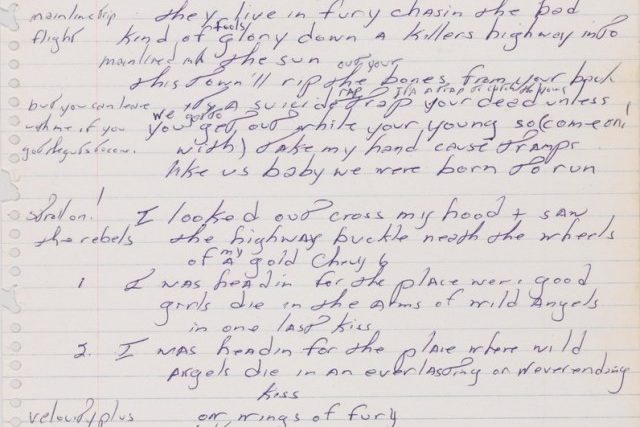 mainline trip they live in fury chasin the bad
flight kind of fools glory down a killers highway into
mainlined into the sun
this town'll rip the bones from your back
out your
but you can leave its a suicide trap your dead unless
rap its a rap to catch the young
with me if you you get out while your young so (come on
we gotta
got the guts to run. with) take my hand cause tramps
like us baby we were born to run
I looked out cross my hood + saw
the rebels the highway buckle neath the wheels
of a gold Chevy 6
my
1. I was headin for the place were good
girls die in the arms of wild Angels
in one last kiss
2. I was headin for the place where wild
angels die in an everlasting or neverending
kiss
velocity plus on wings of fury